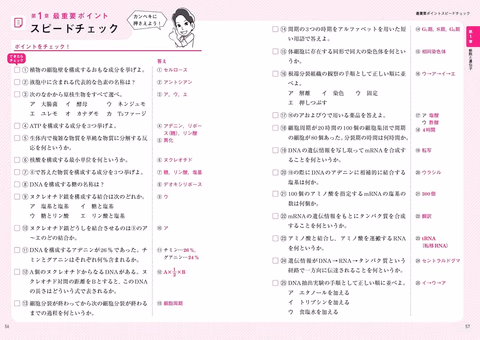 第1章 最重要ポイント
スピードチェック
カンペキに
押さえよう!
ポイントをチェック!
できたらチェック
答え
① 植物の細胞壁を構成するおもな成分を挙げよ。
① セルロース
② 液胞中に含まれる代表的な色素の名称は?
② アントシアン
③ 次のなかから原核生物をすべて選べ。
③ ア、ウ、エ
ア 大腸菌 イ 酵母 ウ ネンジュモ
エ ユレモ オ カナダモ カ T₂ファージ
④ ATPを構成する成分を3つ挙げよ。
④ アデニン、リボース(糖)、リン酸
⑤ 生体内で複雑な物質を単純な物質に分解する反
応を何というか。
⑤ 異化
⑥ 核酸を構成する最小単位を何というか。
⑥ ヌクレオチド
⑦ ⑥で答えた物質を構成する成分を3つ挙げよ。
⑦ 糖、リン酸、塩基
⑧ DNAを構成する糖の名称は?
⑧ デオキシリボース
⑨ ヌクレオチド鎖を構成する結合は次のどれか。
⑨ ウ
ア 塩基と塩基 イ 糖と塩基
ウ 糖とリン酸 エ リン酸と塩基
⑩ ヌクレオチド鎖どうしを結合させるのは⑨のア
〜エのどの結合か。
⑩ ア
⑪ DNAを構成するアデニンが26%であった。チ
ミンとグアニンはそれぞれ何%含まれるか。
⑪ チミン…26%、
グアニン…24%
⑫ A個のヌクレオチドからなるDNAがある。ヌ
クレオチド対間の距離をBとすると、このDNA
の長さはどういう式で表されるか。
⑫ A×1/2×B
⑬ 細胞分裂が終わってから次の細胞分裂が終わる
までの過程を何というか。
⑬ 細胞周期
56
最重要ポイントスピードチェック
第1章
⑭ 間期の3つの時期をアルファベットを用いた短
い用語で答えよ。
⑭ G₁期、S期、G₂期
⑮ 体細胞に存在する同形で同大の染色体を何とい
うか。
⑮ 相同染色体
⑯ 根端分裂組織の観察の手順として正しい順に並
べよ。
⑯ ウ→ア→イ→エ
ア 解離 イ 染色 ウ 固定
エ 押しつぶす
⑰ ⑯のアおよびウで用いる薬品を答えよ。
⑰ ア 塩酸
ウ 酢酸
⑱ 細胞周期が20時間の100個の細胞集団で間期
の細胞が80個あった。分裂期の時間は何時間か。
⑱ 4時間
⑲ DNAの遺伝情報を写し取ってmRNAを合成す
ることを何というか。
⑲ 転写
⑳ ⑲の際にDNAのアデニンに相補的に結合する
塩基は何か。
⑳ ウラシル
㉑ 100個のアミノ酸を指定するmRNAの塩基の
数は何個か。
㉑ 300個
㉒ mRNAの遺伝情報をもとにタンパク質を合成
することを何というか。
㉒ 翻訳
㉓ アミノ酸と結合し、アミノ酸を運搬するRNA
を何というか。
㉓ tRNA
(転移RNA)
㉔ 遺伝情報がDNA→RNA→タンパク質という
経路で一方向に伝達されることを何というか。
㉔ セントラルドグマ
㉕ DNA抽出実験の手順として正しい順に並べよ。
㉕ イ→ウ→ア
ア エタノールを加える
イ トリプシンを加える
ウ 食塩水を加える
57